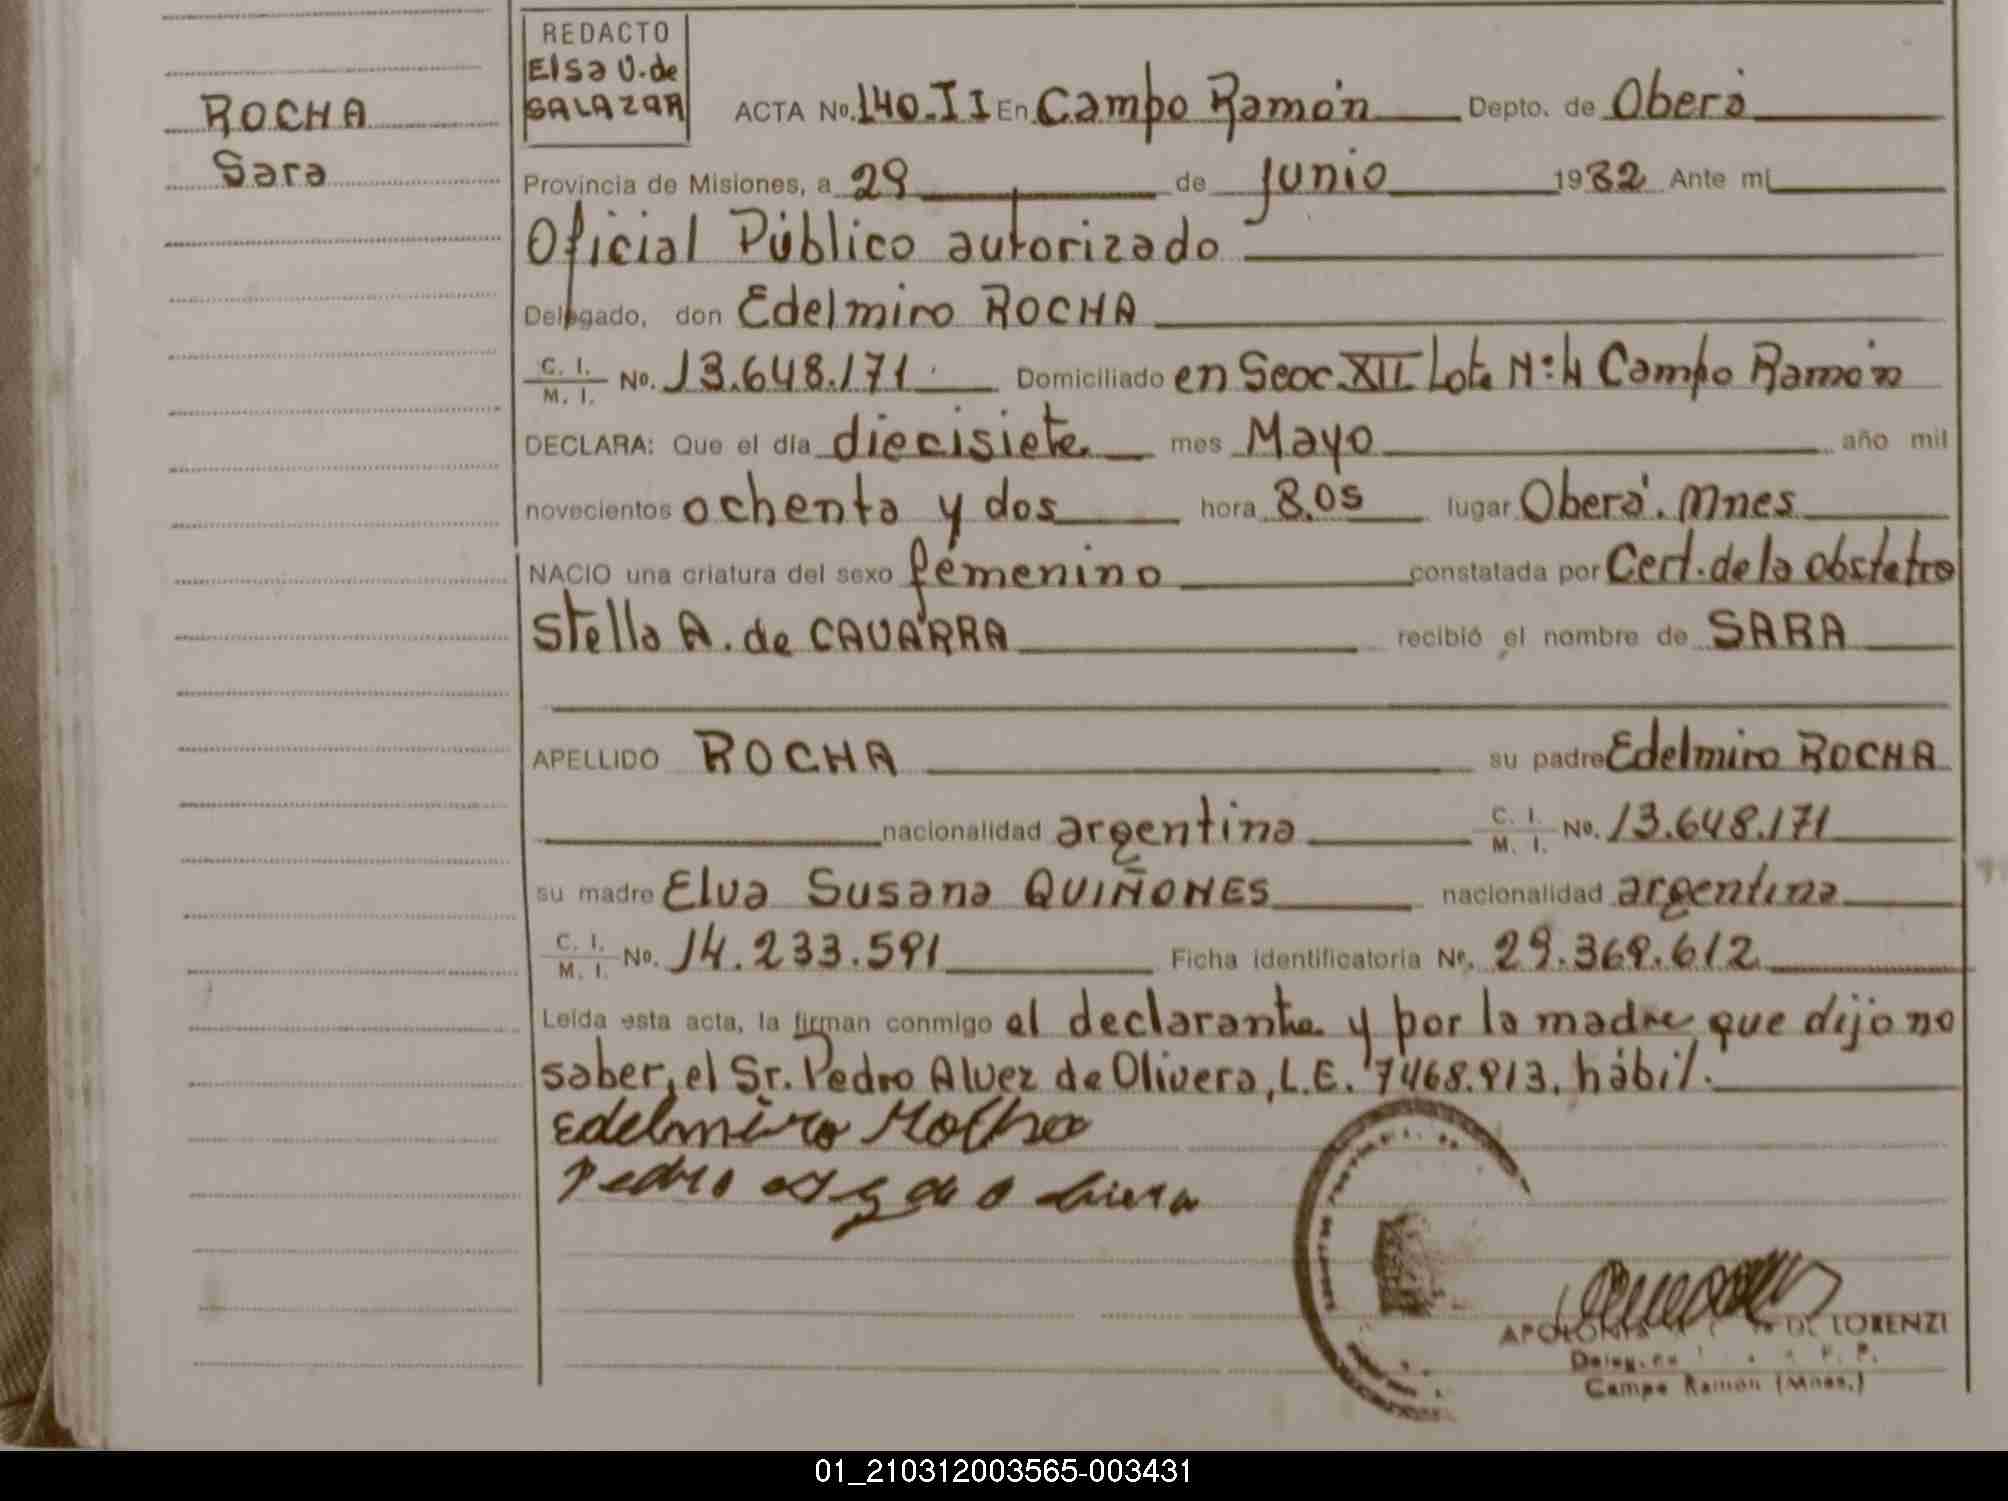 ROCHA
Sara
REDACTO
Elsa V. de
SALAZAR
ACTA No. 140. II En Campo Ramón Depto. de Oberá
Provincia de Misiones, a 29 de junio 1982 Ante mí
Oficial Público autorizado
Delegado, don Edelmiro ROCHA
C. I. / M. I. No. 13.648.171 Domiciliado en Secc. XII Lote Nº 4 Campo Ramón
DECLARA: Que el día diecisiete mes Mayo año mil
novecientos ochenta y dos hora 8.05 lugar Oberá. Mnes
NACIO una criatura del sexo femenino constatada por Cert. de la obstetra
Stella A. de CAVARRA recibió el nombre de SARA
APELLIDO ROCHA su padre Edelmiro ROCHA
nacionalidad argentina C. I. / M. I. No. 13.648.171
su madre Elva Susana QUIÑONES nacionalidad argentina
C. I. / M. I. No. 14.233.591 Ficha identificatoria No. 29.369.612
Leída esta acta, la firman conmigo el declarante y por la madre que dijo no
saber, el Sr. Pedro Alvez de Olivera, L.E. 7468.913. hábil.
Edelmiro Rocha
Pedro de Olivera
APOLONIA DE LORENZI
Campo Ramón (Mnes.)
01_210312003565-003431